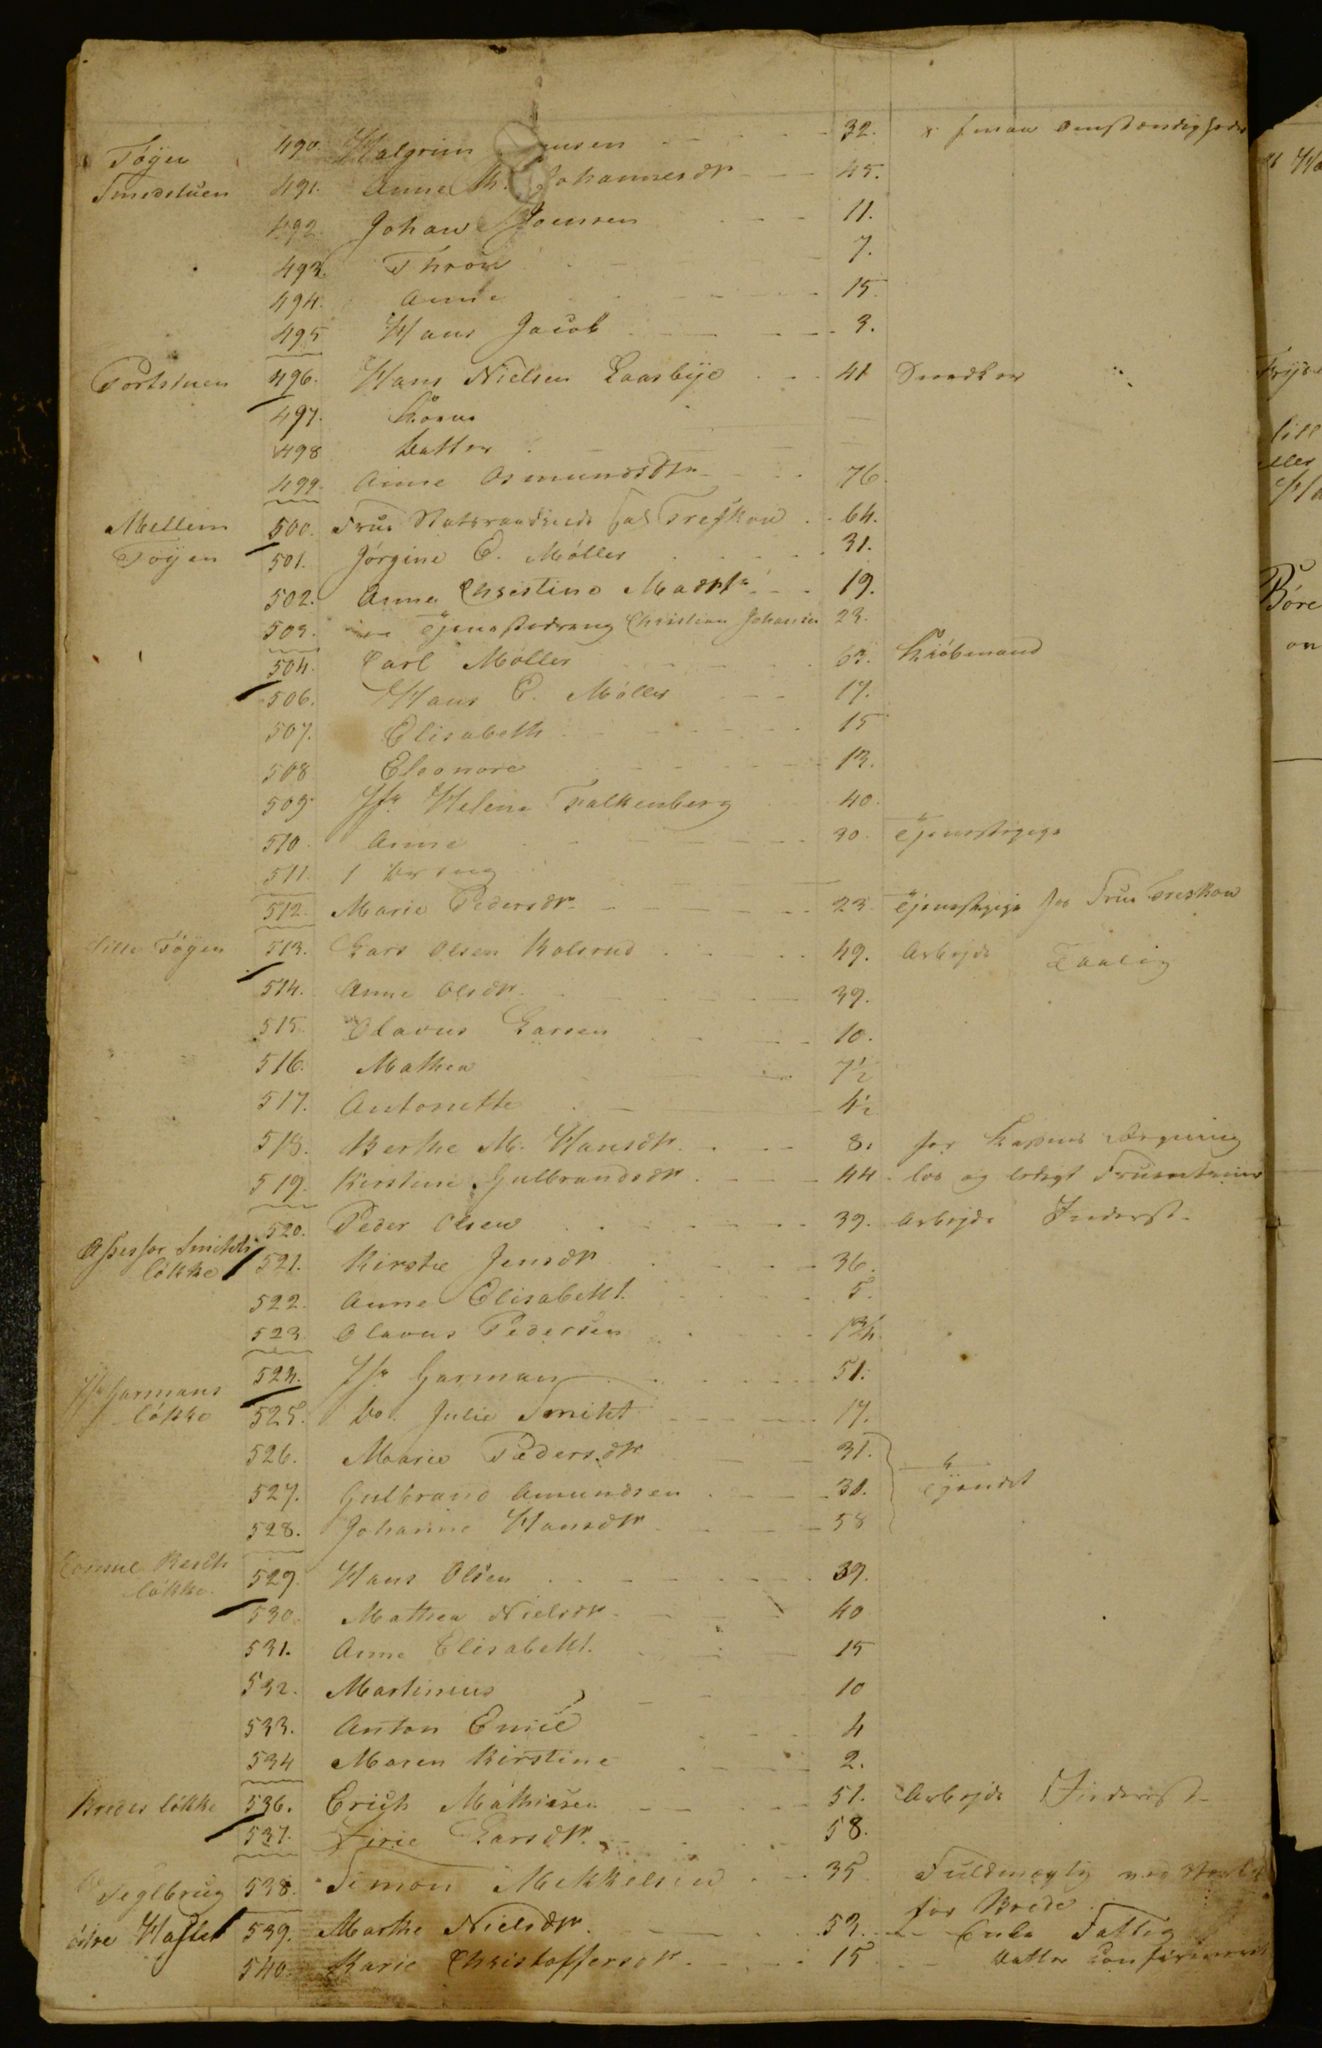 Töyen 490. Halgrim Jensen 32. i smaa Omstændigheder
Smedstuen 491. Anne M. Johannesdtr 45.
492. Johan Jensen 11.
493. Thron 7.
494. Anne 15
495 Hans Jacob 3.
Portstuen 496. Hans Nielsen Laasbye 41 Snedker
497. Kone
498 Datter
499. Anne Osmundsdtr 76
Mellem 500. Frue Treschow 64.
Töyen 501. Jørgine C. Møller 31.
502. Anne Christine Madsdtr 19.
503. Tjenestedreng Christian Johansen 23.
504. Carl Møller 63. Kiøbmand
506. Hans C. Møller 17.
507. Elisabeth 15
508 Eleonore 13.
509 Jfr Helene Falkenberg 40.
510 Anne 30. Tjenestepige
511. 1 Dreng
512. Marie Pedersdtr 23 Tjenestepige hos Frue Treschow
Lille Töyen 513. Lars Olsen Kolsrud 49. Arbejds Taalig
514. Anne Olsdtr. 39.
515. Olavus Larsen 10.
516. Mathea 7½
517. Antonette 4½
518. Berthe M. Hansdtr 8. for Kassens Regning
519. Kirstine Gulbrandsdtr 44. løs og ledigt Fruentimer
520. Peder Olsen 39. Arbejds Inderst
Assessor Smidths 521. Kirstie Jensdtr 36.
løkke
522. Anne Elisabeth. 5.
523. Olavus Pedersen 1¾
524. Jfr Garman 51.
Jfr Garmans
løkke 525. Do. Julie Smidt 17.
526. Marie Pedersdtr 31.
527. Gulbrand Amundsen 30. Tjendst
528. Johanne Hansdtr 58
løkke 529. Hans Olsen 39.
530. Mathea Nielsdtr 40
531. Anne Elisabeth. 15
532. Martinius 10
533. Anton Emil 4
534 Maren Kirstine 2.
Bredes løkke 536. Erich Mathiesen 51. Arbejds Inderst
537. Sirie Larsdtr. 58.
Teglbrug 538. Simon Mekkelsen 35 Fuldmægtig ved
for Brede
østre Hasle 539. Marthe Nielsdtr. 53. Enke Fattig
540. Karie Christoffersdtr. 15 Datter Confirmeret